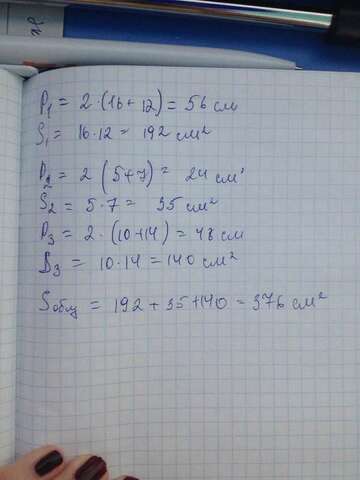 P₁ = 2·(16+12) = 56 см
S₁ = 16·12 = 192 см²
P₂ = 2(5+7) = 24 см
S₂ = 5·7 = 35 см²
P₃ = 2·(10+14) = 48 см
S₃ = 10·14 = 140 см²
Sобщ = 192+35+140 = 376 см²